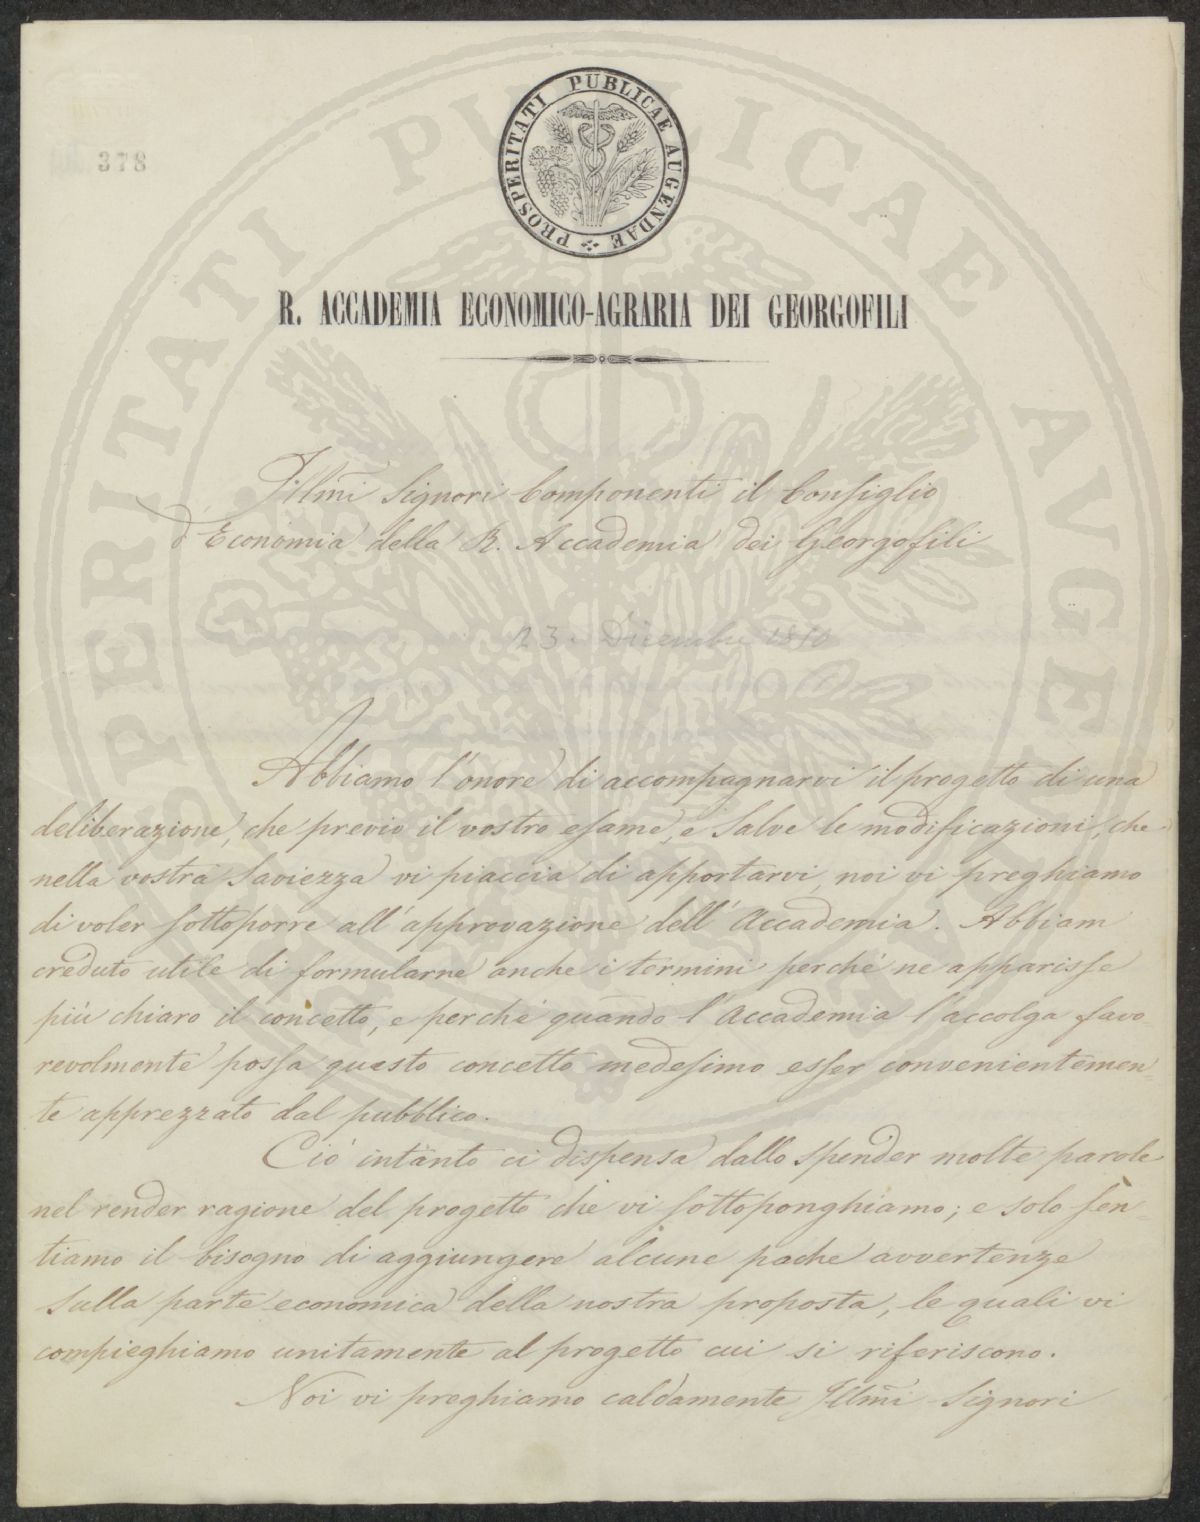 378
PROSPERITATI PUBLICAE AUGENDAE
R. ACCADEMIA ECONOMICO-AGRARIA DEI GEORGOFILI
Illmi Signori Componenti il Consiglio
d'Economia della R. Accademia dei Georgofili
23. Dicembre
Abbiamo l'onore di accompagnarvi il progetto di una
deliberazione, che previo il vostro esame, e salve le modificazioni, che
nella vostra saviezza vi piaccia di apportarvi, noi vi preghiamo
di voler sottoporre all'approvazione dell'Accademia. Abbiam
creduto utile di formularne anche i termini perché ne apparisse
più chiaro il concetto, e perché quando l'Accademia l'accolga favo-
revolmente possa questo concetto medesimo esser convenientemen-
te apprezzato dal pubblico.
Ciò intanto ci dispensa dallo spender molte parole
nel render ragione del progetto che vi sottoponghiamo; e solo sen-
tiamo il bisogno di aggiungere alcune poche avvertenze
sulla parte economica della nostra proposta, le quali vi
compieghiamo unitamente al progetto cui si riferiscono.
Noi vi preghiamo caldamente Illmi Signori
PROSPERITATI PUBLICAE AVGENDAE